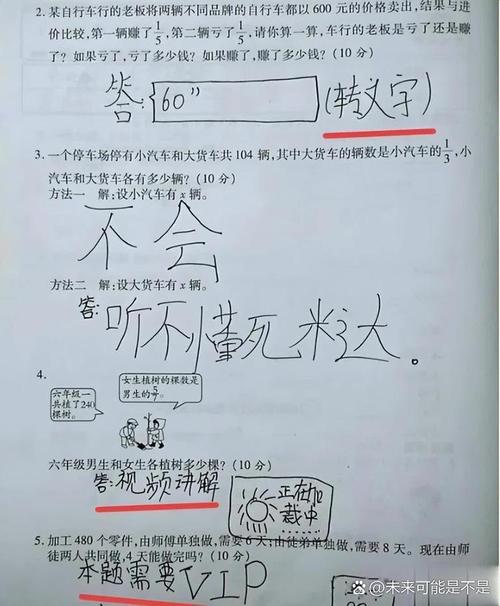 2. 某自行车行的老板将两辆不同品牌的自行车都以 600 元的价格卖出，结果与进
价比较，第一辆赚了1/5，第二辆亏了1/5，请你算一算，车行的老板是亏了还是赚
了？如果亏了，亏了多少钱？如果赚了，赚了多少钱？(10 分)
答：60” (转文字)
3. 一个停车场停有小汽车和大货车共 104 辆，其中大货车的辆数是小汽车的1/3，小
汽车和大货车各有多少辆？(10 分)
方法一 解：设小汽车有 x 辆。
不会
方法二 解：设大货车有 x 辆。
答：听不懂死米达。
4.
六年级一
共植了240
棵树。
女生植树的棵数是
男生的
六年级男生和女生各植树多少棵？(10 分)
答：视频讲解
正在加
载中
5. 加工 480 个零件，由师傅单独做，需要 6 天；由徒弟单独做，需要 8 天。现在由师
徒两人共同做，4 天能做完吗？(10 分)
本题需要VIP
@未来可能是不是